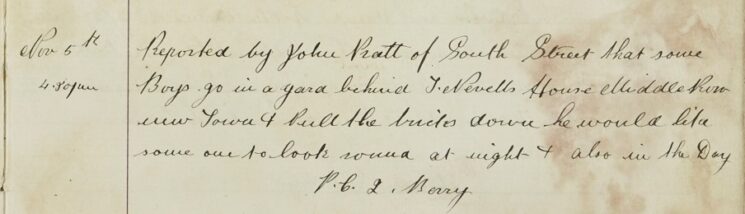 Nov 5th Reported by John Pratt of South Street that some
4.30pm Boys go in a yard behind T. Nevells House Middle Row
new Town & Pull the bricks down he would like
some one to look round at night & also in the Day
P.C. 2. Berry